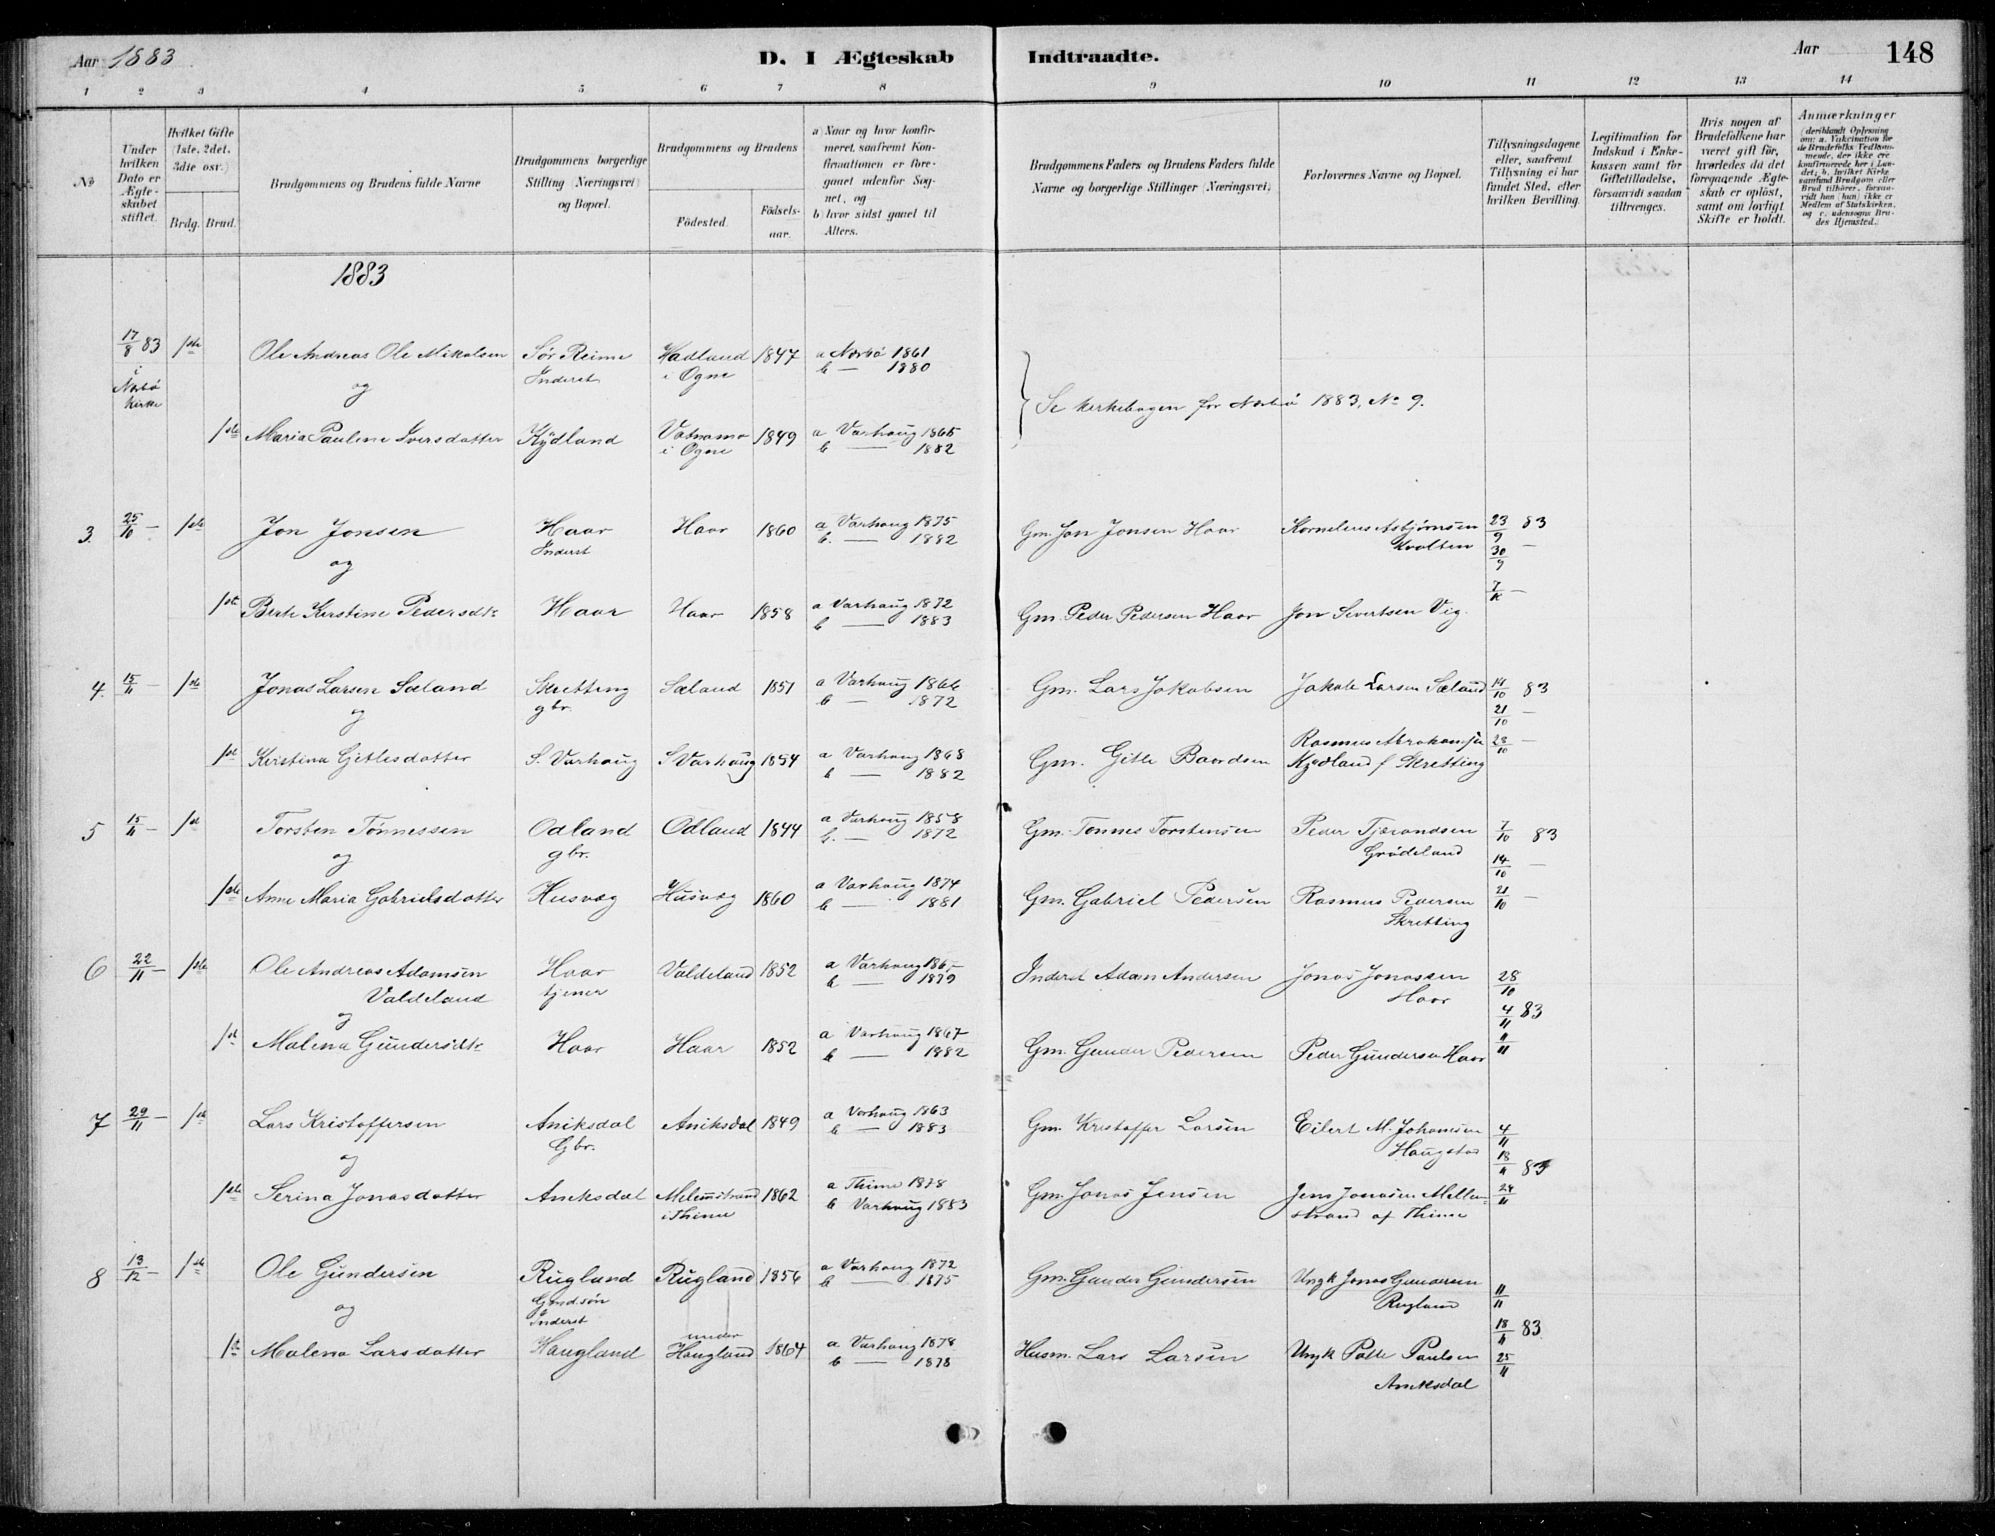 Aar 1883
D. I Ægteskab Indtraadte.
Aar
148
1 2 3 4 5 6 7 8 9 10 11 12 13 14
No
Under hvilken Dato er Ægteskabet stiftet.
Hvilket Gifte (1ste, 2det, 3die osv.)
Brdg. Brud.
Brudgommens og Brudens fulde Navne
Brudgommens borgerlige Stilling (Næringsvei) og Bopæl.
Brudgommens og Brudens
Fødested. Fødselsaar.
a) Naar og hvor konfirmeret, saafremt Konfirmationen er foregaaet udenfor Sognet, og
b) hvor sidst gaaet til Alters.
Brudgommens Faders og Brudens Faders fulde Navne og borgerlige Stillinger (Næringsvei)
Forlovernes Navne og Bopæl.
Tillysningsdagene eller, saafremt Tillysning ei har fundet Sted, efter hvilken Bevilling.
Legitimation for Indskud i Enkekassen samt for Giftetilladelse, forsaavidt saadan tiltrænges.
Hvis nogen af Brudefolkene har været gift før, hvorledes da det foregaaende Ægteskab er opløst, samt om lovligt Skifte er holdt.
Anmærkninger
1883
17/8 83 1ste Ole Andreas Ole Mikalsen Sør Reime Hadland 1847 a Nærbø 1861
i Nærbø Kirke og Inderst i Ogne b — 1880
Se kirkebogen for Nærbø 1883, No 9.
1ste Maria Pauline Iversdatter Kydland Vatnamo 1849 a Varhaug 1865
i Ogne b — 1882
3. 25/10 — 1ste Jon Jonsen Haar Haar 1860 a Varhaug 1875 Gm. Jon Jonsen Haar Kornelius Asbjørnsen 23/9 83
og Inderst b. — 1882 30/9 —
1ste Berte Kirstine Pedersdtr Haar Haar 1858 a Varhaug 1872 Gm. Peder Pedersen Haar Jon Sivertsen Vig. 7/10 —
b — 1883
4. 15/11 — 1ste Jonas Larsen Sæland Skretting Sæland 1851 a Varhaug 1866 Gm. Lars Jakobsen Jakob Larsen Sæland 14/10 83
og gbr. b — 1872 21/10 —
1ste Kirstina Gitlesdatter S. Varhaug S Varhaug 1854 a Varhaug 1868 Gm. Gitle Baardsen Rasmus Abrahamsen 28/10 —
b — 1882 Kydland f Skretting
5 15/11 — 1ste Torsten Tønnessen Odland Odland 1844 a Varhaug 1858 Gm. Tønnes Torstensen Peder Tjærandsen 7/10 83
og gbr. b. — 1872 Grødeland 14/10 —
1ste Anne Maria Gabrielsdatter Husvæg Husvæg 1860 a Varhaug 1874 Gm. Gabriel Pedersen Rasmus Pedersen 21/10 —
b — 1881 Skretting
6 22/11 — 1ste Ole Andreas Adamsen Haar Valdeland 1852 a Varhaug Inderst Adam Andersen Jonas Jonassen 28/10
Valdeland tjener b — 1879 Haar
og 4/11 83
1ste Malena Gundersdtr Haar Haar 1852 a Varhaug 1867 Gm. Gunder Pedersen Peder Gundersen Haar 11/11
b — 1882
7 29/11 — 1ste Lars Kristoffersen Aniksdal Aniksdal 1849 a Varhaug 1863 Gm. Kristoffer Larsen Eilert M. Johansen 4/11
og Gbr. b — 1883 Haugstad 18/11 83
1ste Serina Jonasdatter Aniksdal Melemstrand 1862 a Thime 1878 Gm. Jonas Jensen Jens Jonasen Mellem- 24/11
i Thime b Varhaug 1883 strand af Thime
8 13/12 — 1ste Ole Gundersen Rugland Rugland 1856 a Varhaug 1872 Gm. Gunder Gundersen Ungk Jonas Gundersen
og Gmd.søn Inderst b — 1875 Rugland 11/11
18/11 83
1ste Malena Larsdatter Haugland under Haugland 1864 a Varhaug 1878 Husm. Lars Larsen Ungk Palle Paulsen 25/11
b — 1878 Aniksdal